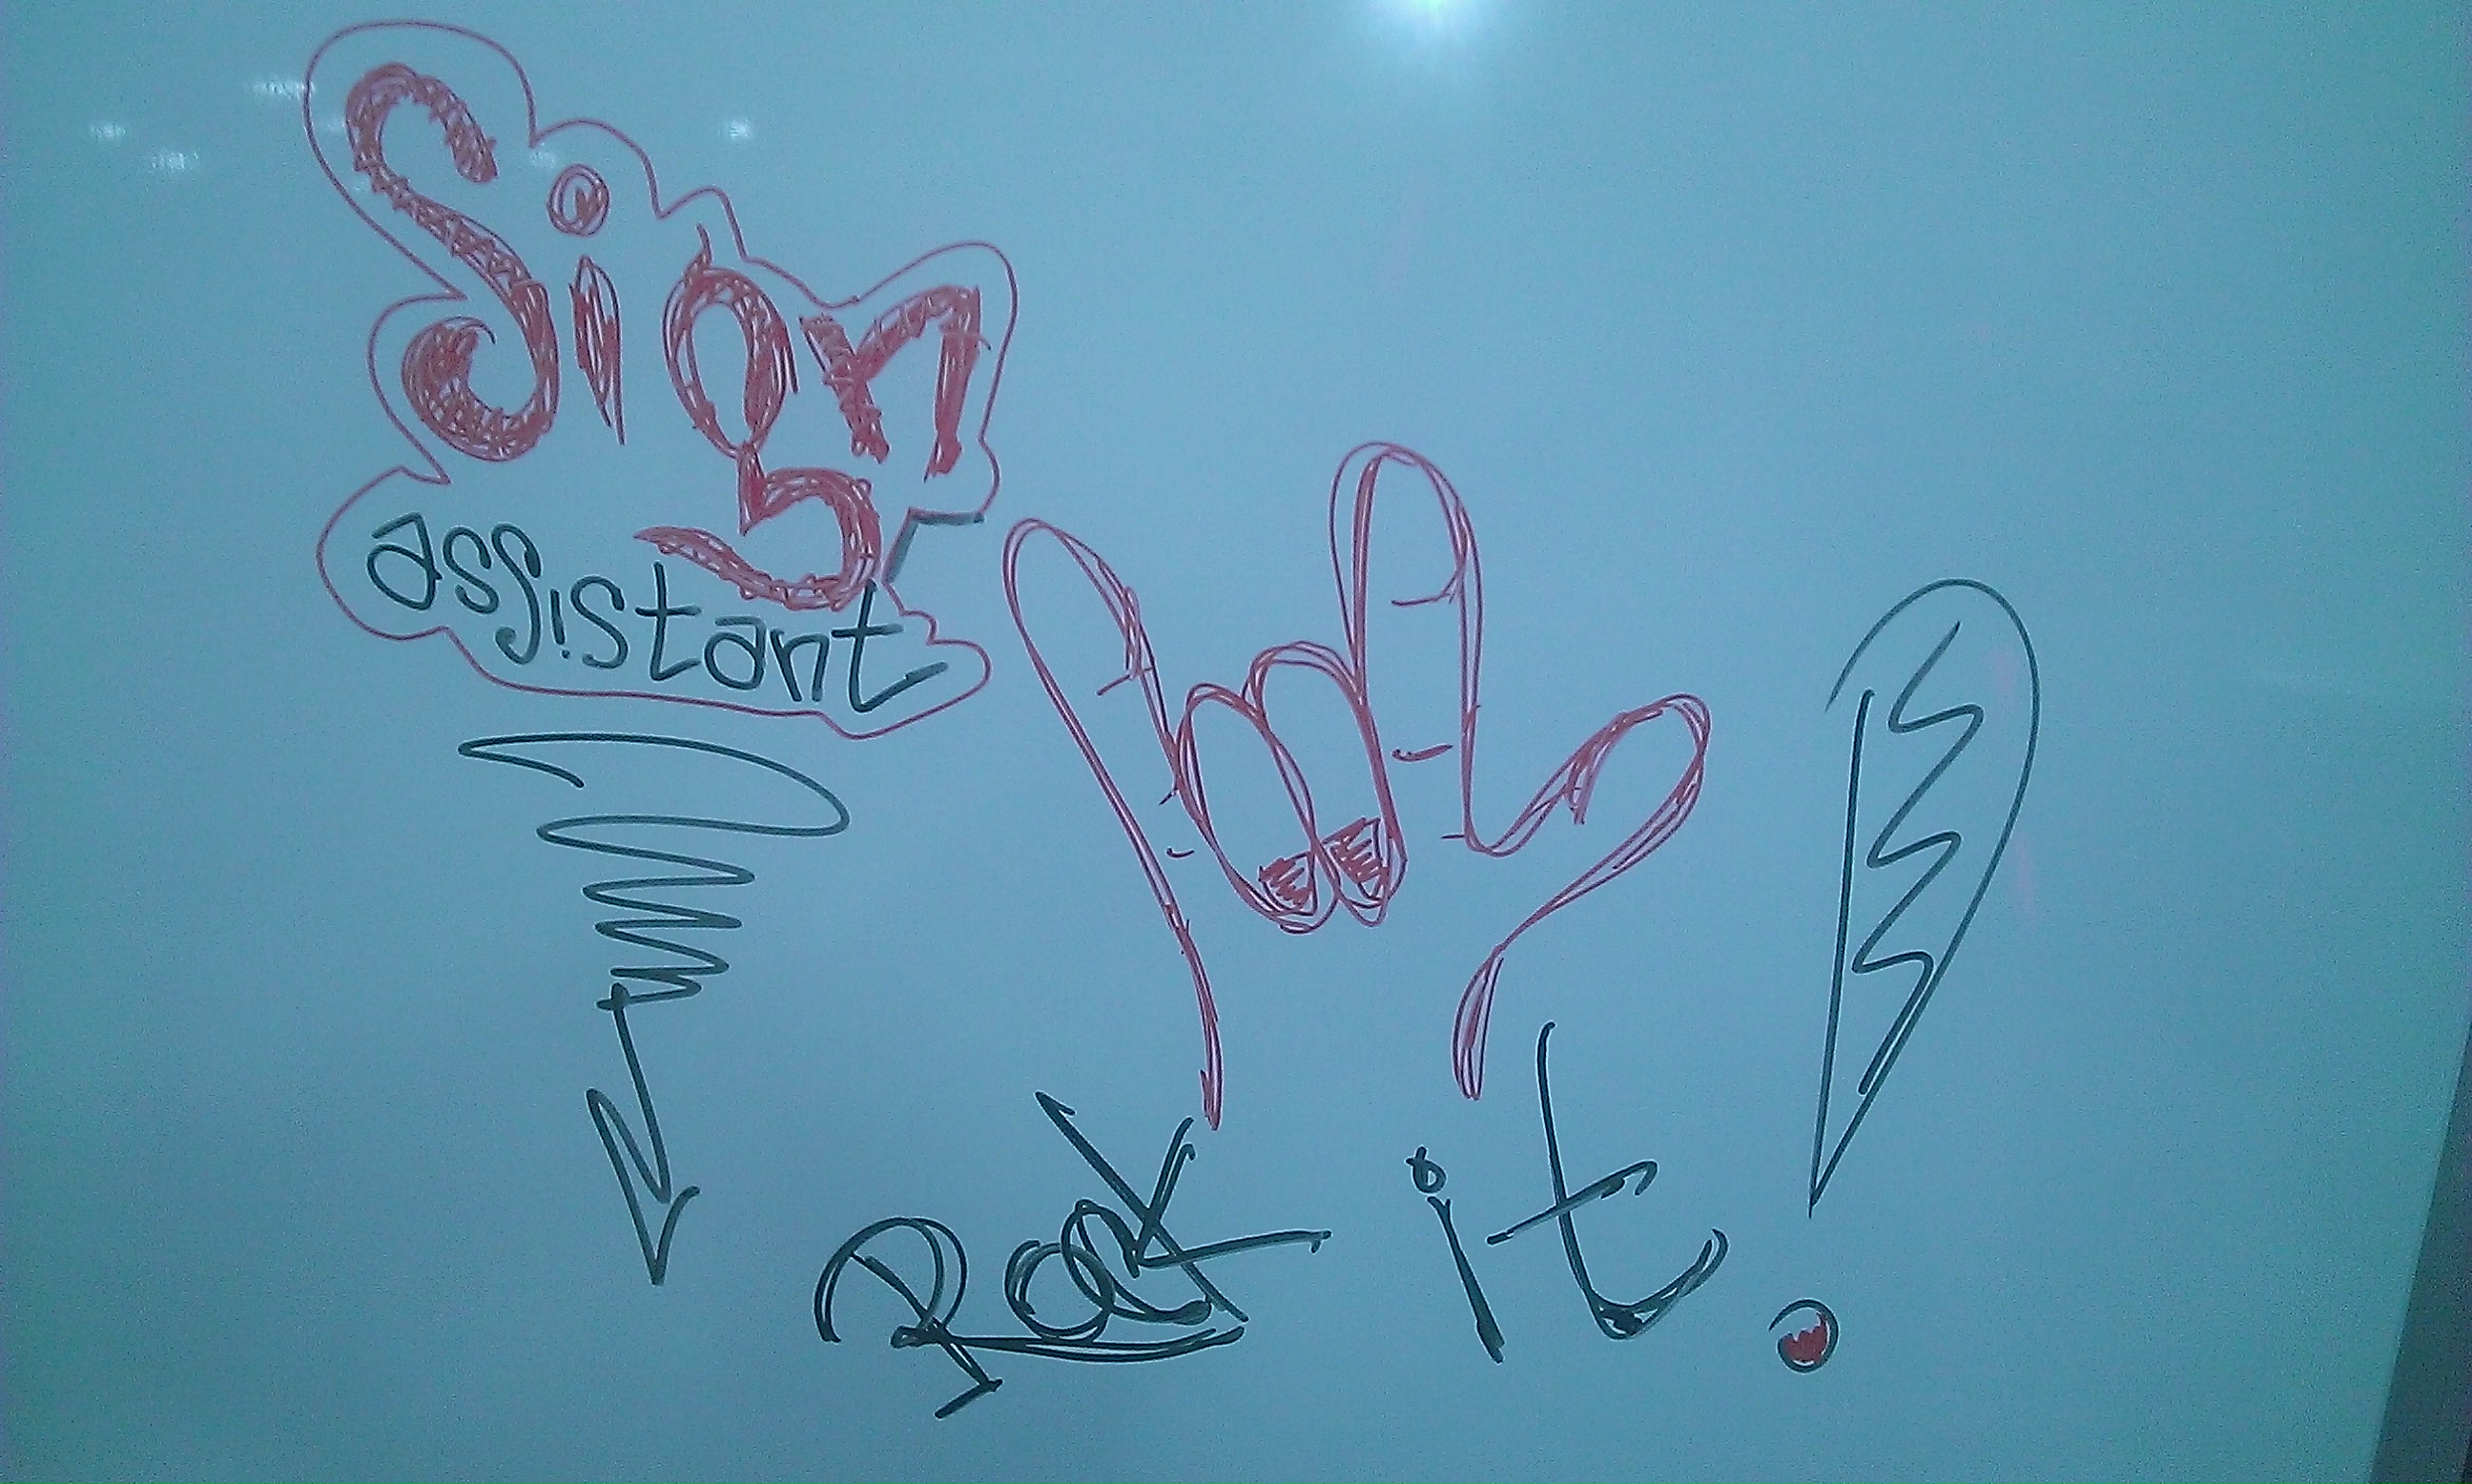 Sign
assistant
Rock it!